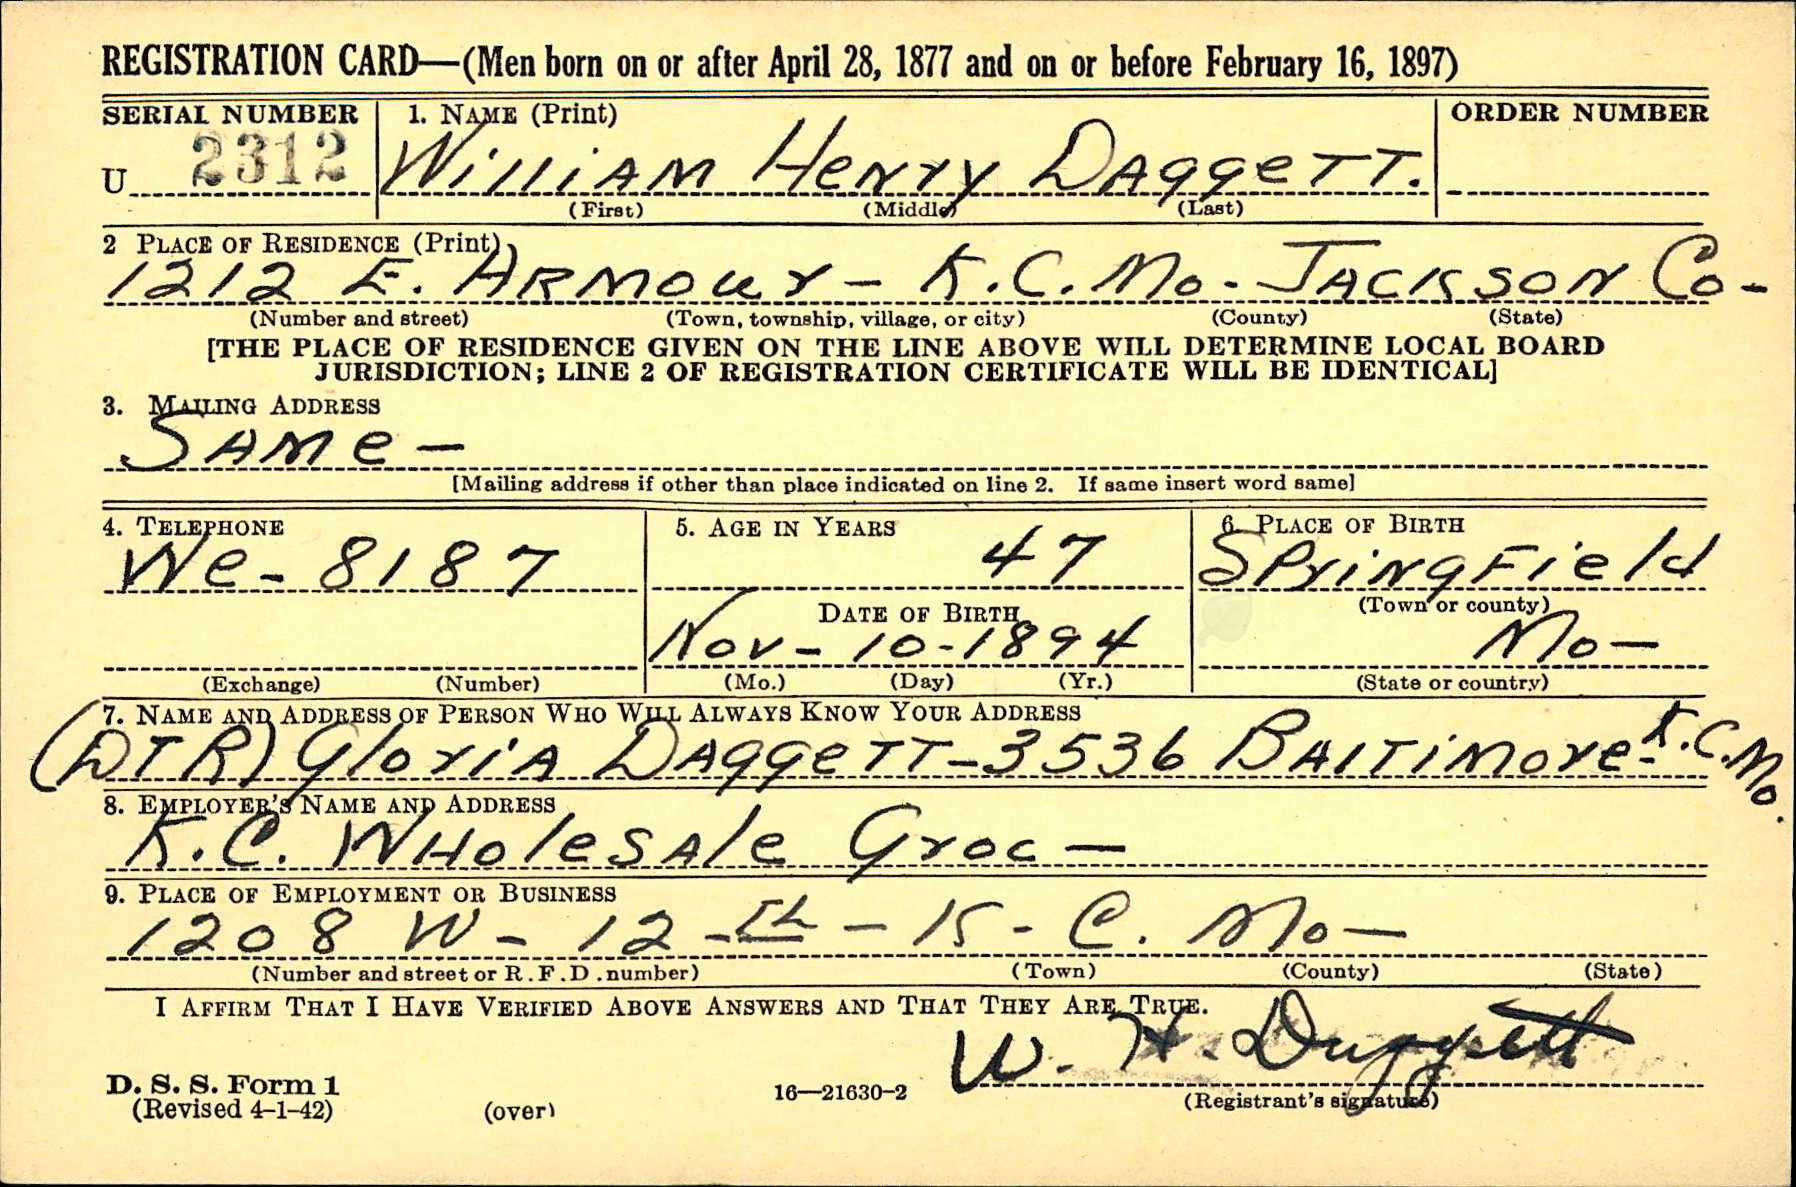 REGISTRATION CARD—(Men born on or after April 28, 1877 and on or before February 16, 1897)
SERIAL NUMBER 1. NAME (Print) ORDER NUMBER
U 2312 William Henry Daggett.
(First) (Middle) (Last)
2 PLACE OF RESIDENCE (Print)
1212 E. Armour – K.C. Mo. Jackson Co –
(Number and street) (Town, township, village, or city) (County) (State)
[THE PLACE OF RESIDENCE GIVEN ON THE LINE ABOVE WILL DETERMINE LOCAL BOARD
JURISDICTION; LINE 2 OF REGISTRATION CERTIFICATE WILL BE IDENTICAL]
3. MAILING ADDRESS
Same –
[Mailing address if other than place indicated on line 2. If same insert word same]
4. TELEPHONE 5. AGE IN YEARS 6. PLACE OF BIRTH
We - 8187 47 Springfield
DATE OF BIRTH (Town or county)
Nov - 10 - 1894 Mo –
(Exchange) (Number) (Mo.) (Day) (Yr.) (State or country)
7. NAME AND ADDRESS OF PERSON WHO WILL ALWAYS KNOW YOUR ADDRESS
(DTR) Gloria Daggett – 3536 Baltimore - K.C. Mo.
8. EMPLOYER'S NAME AND ADDRESS
K.C. Wholesale Groc –
9. PLACE OF EMPLOYMENT OR BUSINESS
1208 W - 12 - th – K - C. Mo –
(Number and street or R.F.D. number) (Town) (County) (State)
I AFFIRM THAT I HAVE VERIFIED ABOVE ANSWERS AND THAT THEY ARE TRUE.
W. H. Daggett
D. S. S. Form 1
(Revised 4–1–42) (over) 16—21630-2 (Registrant's signature)